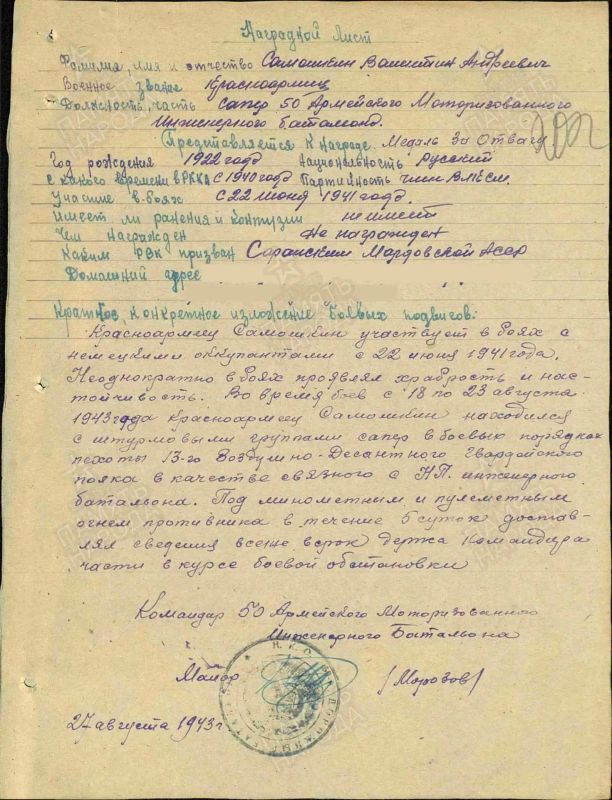 Наградной лист
Фамилия, имя и отчество Самошкин Валентин Андреевич
Военное звание Красноармеец
Должность, часть сапер 50 Армейского Моторизованного
Инженерного батальона.
Представляется к награде. Медаль За Отвагу
Год рождения 1922 года Национальность Русский
с какого времени в РККА с 1940 года Партийность член ВЛКСМ.
Участие в боях с 22 июня 1941 года.
Имеет ли ранения и контузии не имеет
Чем награжден Не награжден
Каким РВК призван Саранским Мордовской АССР
Домашний адрес " " "
Краткое, конкретное изложение боевых подвигов:
Красноармеец Самошкин участвует в боях с
немецкими оккупантами с 22 июня 1941 года.
Неоднократно в боях проявлял храбрость и нас-
тойчивость. Во время боев с 18 по 23 августа
1943 года красноармеец Самошкин находился
с штурмовыми группами сапер в боевых порядках
пехоты 13-го Воздушно-Десантного Гвардейского
полка в качестве связного с НП. инженерного
батальона. Под минометным и пулеметным
огнем противника в течение 5 суток достав-
лял сведения держа Командира
части в курсе боевой обстановки
Командир 50 Армейского Моторизованного
Инженерного Батальона
Майор /Морозов/
27 августа 1943 г